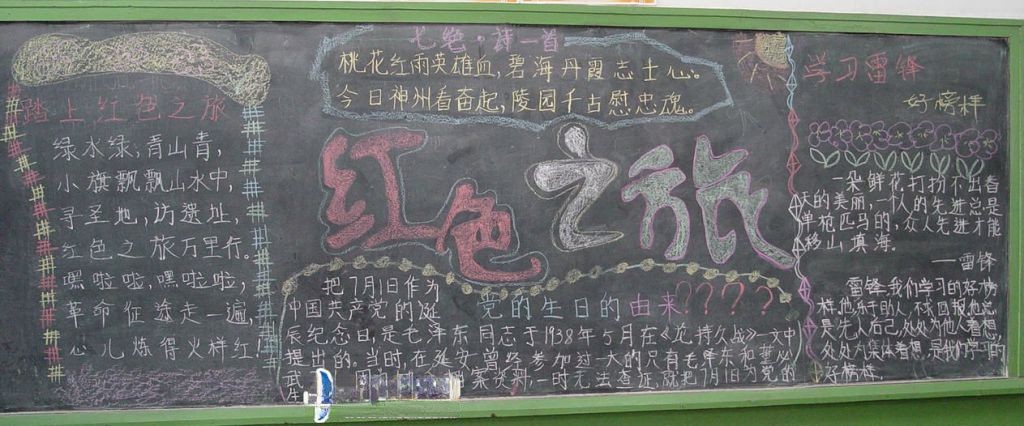 踏上红色之旅
绿水绿,青山青,
小旗飘飘山水中,
寻圣地,访遗址,
红色之旅万里行。
嘿啦啦,嘿啦啦,
革命征途走一遍,
心儿炼得火样红
七绝·诗一首
桃花红雨英雄血,碧海丹霞志士心。
今日神州看奋起,陵园千古慰忠魂。
红色之旅
党的生日的由来????
把7月1日作为
中国共产党的诞
辰纪念日,是毛泽东同志于1938年5月在《论持久战》一文中
提出的。当时,在延安曾经参加过一大的只有毛泽东和董必
武
档案资料,一时无法查证,就把7月1日为党的
生
学习雷锋
好榜样
一朵鲜花打扮不出春
天的美丽,一个人的先进总是
单枪匹马的,众人先进才能
移山填海。
——雷锋
雷锋我们学习的好榜
样,他乐于助人,不求回报,他总
是先人后己,处处为他人着想,
处处为集体着想,是我们学习的
好榜样。